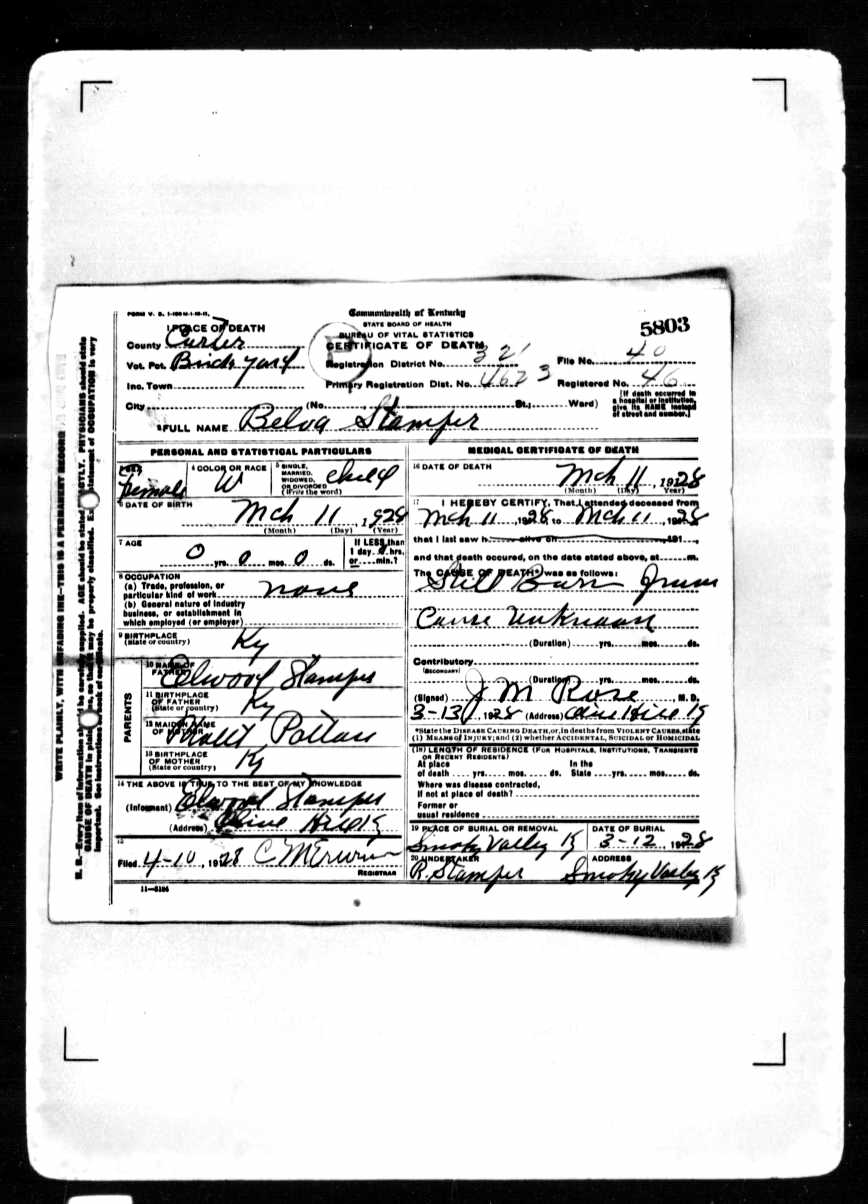 FORM V. S. 1-100 M-1-10-11.
Commonwealth of Kentucky
STATE BOARD OF HEALTH
BUREAU OF VITAL STATISTICS
CERTIFICATE OF DEATH
5803
1 PLACE OF DEATH
County Carter
Vot. Pct. Brick yard
Registration District No. 321
File No. 40
Inc. Town
Primary Registration Dist. No. 4623
Registered No. 46
City (No. St.; Ward)
[If death occurred in a hospital or institution, give its NAME instead of street and number.]
2 FULL NAME Belva Stamper
PERSONAL AND STATISTICAL PARTICULARS
3 SEX Female
4 COLOR OR RACE W
5 SINGLE, MARRIED, WIDOWED, OR DIVORCED (Write the word) child
6 DATE OF BIRTH Mch 11, 1928
(Month) (Day) (Year)
7 AGE 0 yrs. 0 mos. 0 ds.
If LESS than 1 day, 0 hrs. or min.?
8 OCCUPATION
(a) Trade, profession, or particular kind of work none
(b) General nature of industry business, or establishment in which employed (or employer)
9 BIRTHPLACE (State or country) Ky
PARENTS
10 NAME OF FATHER Elwood Stamper
11 BIRTHPLACE OF FATHER (State or country) Ky
12 MAIDEN NAME OF MOTHER
13 BIRTHPLACE OF MOTHER (State or country) Ky
14 THE ABOVE IS TRUE TO THE BEST OF MY KNOWLEDGE
(Informant) Elwood Stamper
(Address) Olive Hill Ky
15
Filed 4-10, 1928 C M Erwin
REGISTRAR
11-5184
MEDICAL CERTIFICATE OF DEATH
16 DATE OF DEATH Mch 11, 1928
(Month) (Day) Year)
17 I HEREBY CERTIFY, That I attended deceased from
Mch 11, 1928 to Mch 11, 1928
that I last saw h alive on 191
and that death occured, on the date stated above, at m.
The CAUSE OF DEATH* was as follows:
Still Born From
Cause Unknown
(Duration) yrs. mos. ds.
Contributory
(SECONDARY)
(Duration) yrs. mos. ds.
(Signed) J M Rose, M. D.
3-13, 1928 (Address) Olive Hill Ky
*State the DISEASE CAUSING DEATH, or, in deaths from VIOLENT CAUSES, state (1) MEANS of INJURY; and (2) whether ACCIDENTAL, SUICIDAL or HOMICIDAL
18 LENGTH OF RESIDENCE (FOR HOSPITALS, INSTITUTIONS, TRANSIENTS OR RECENT RESIDENTS)
At place of death yrs. mos. ds. In the State yrs. mos. ds.
Where was disease contracted, if not at place of death?
Former or usual residence
19 PLACE OF BURIAL OR REMOVAL Smoky Valley Ky
DATE OF BURIAL 3-12, 1928
20 UNDERTAKER R. Stamper
ADDRESS Smoky Valley Ky